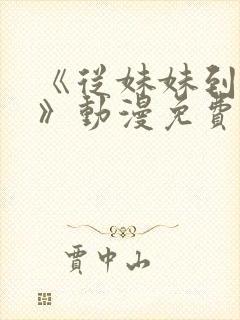 《從妹妹到
》動漫免費
賈中山